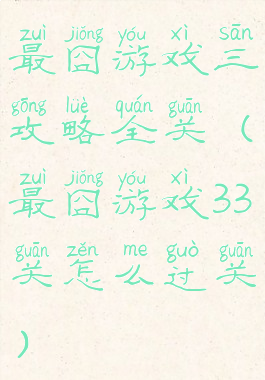 zuì jiǒng yóu xì sān
最囧游戏三
gōng lüè quán guān
攻略全关（
zuì jiǒng yóu xì
最囧游戏33
guān zěn me guò guān
关怎么过关
）